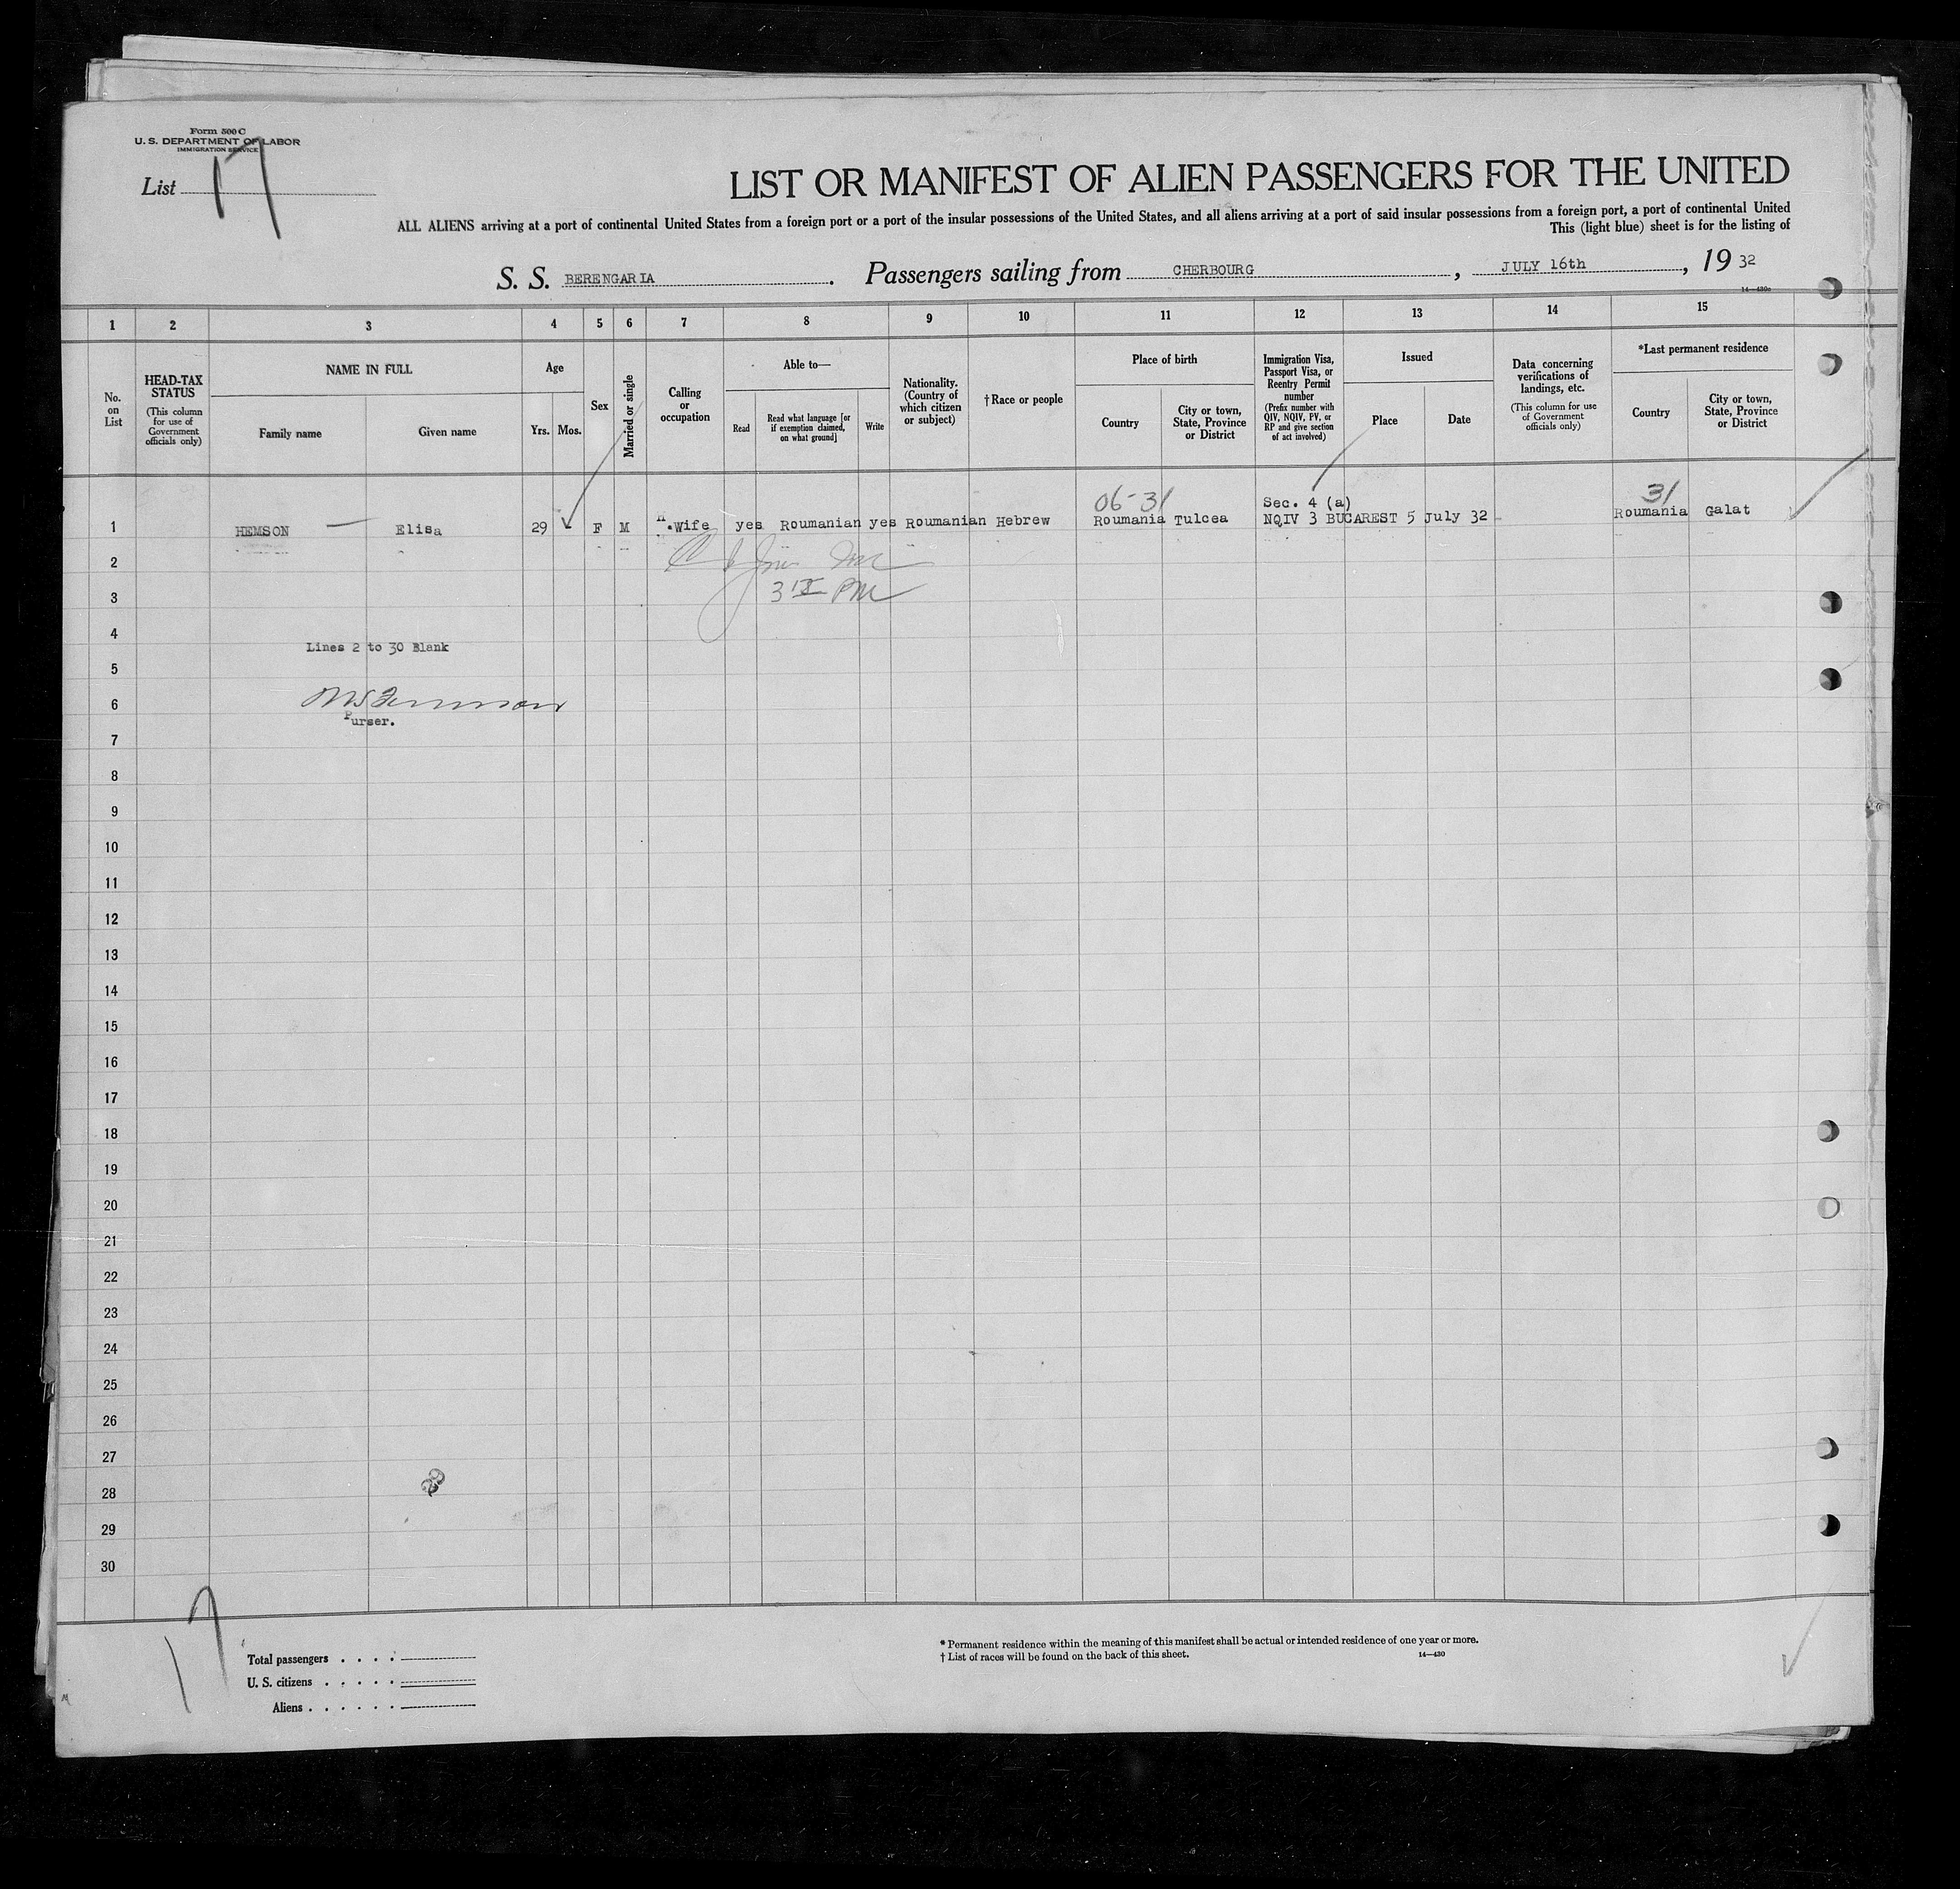 Form 500 C
U. S. DEPARTMENT OF LABOR
IMMIGRATION SERVICE
List 17
LIST OR MANIFEST OF ALIEN PASSENGERS FOR THE UNITED
ALL ALIENS arriving at a port of continental United States from a foreign port or a port of the insular possessions of the United States, and all aliens arriving at a port of said insular possessions from a foreign port, a port of continental United
This (light blue) sheet is for the listing of
S. S. BERENGARIA. Passengers sailing from CHERBOURG, JULY 16th, 19 32
1 2 3 4 5 6 7 8 9 10 11 12 13 14 15
No. on List
HEAD-TAX STATUS
(This column for use of Government officials only)
NAME IN FULL
Family name
Given name
Age
Yrs. Mos.
Sex
Married or single
Calling or occupation
Able to—
Read
Read what language [or if exemption claimed, on what ground]
Write
Nationality. (Country of which citizen or subject)
†Race or people
Place of birth
Country
City or town, State, Province or District
Immigration Visa, Passport Visa, or Reentry Permit number
(Prefix number with QIV, NQIV, PV, or RP and give section of act involved)
Issued
Place
Date
Data concerning verifications of landings, etc.
(This column for use of Government officials only)
*Last permanent residence
Country
City or town, State, Province or District
06-31 Sec. 4 (a) 31
1 HEMSON — Elisa 29 F M H.Wife yes Roumanian yes Roumanian Hebrew Roumania Tulcea NQIV 3 BUCAREST 5 July 32 Roumania Galat
2
3 PM
4
Lines 2 to 30 Blank
5
6
Purser.
7
8
9
10
11
12
13
14
15
16
17
18
19
20
21
22
23
24
25
26
27
28
29
30
17
Total passengers . . . .
U. S. citizens . . . . .
Aliens . . . . . .
* Permanent residence within the meaning of this manifest shall be actual or intended residence of one year or more.
† List of races will be found on the back of this sheet.
14—430